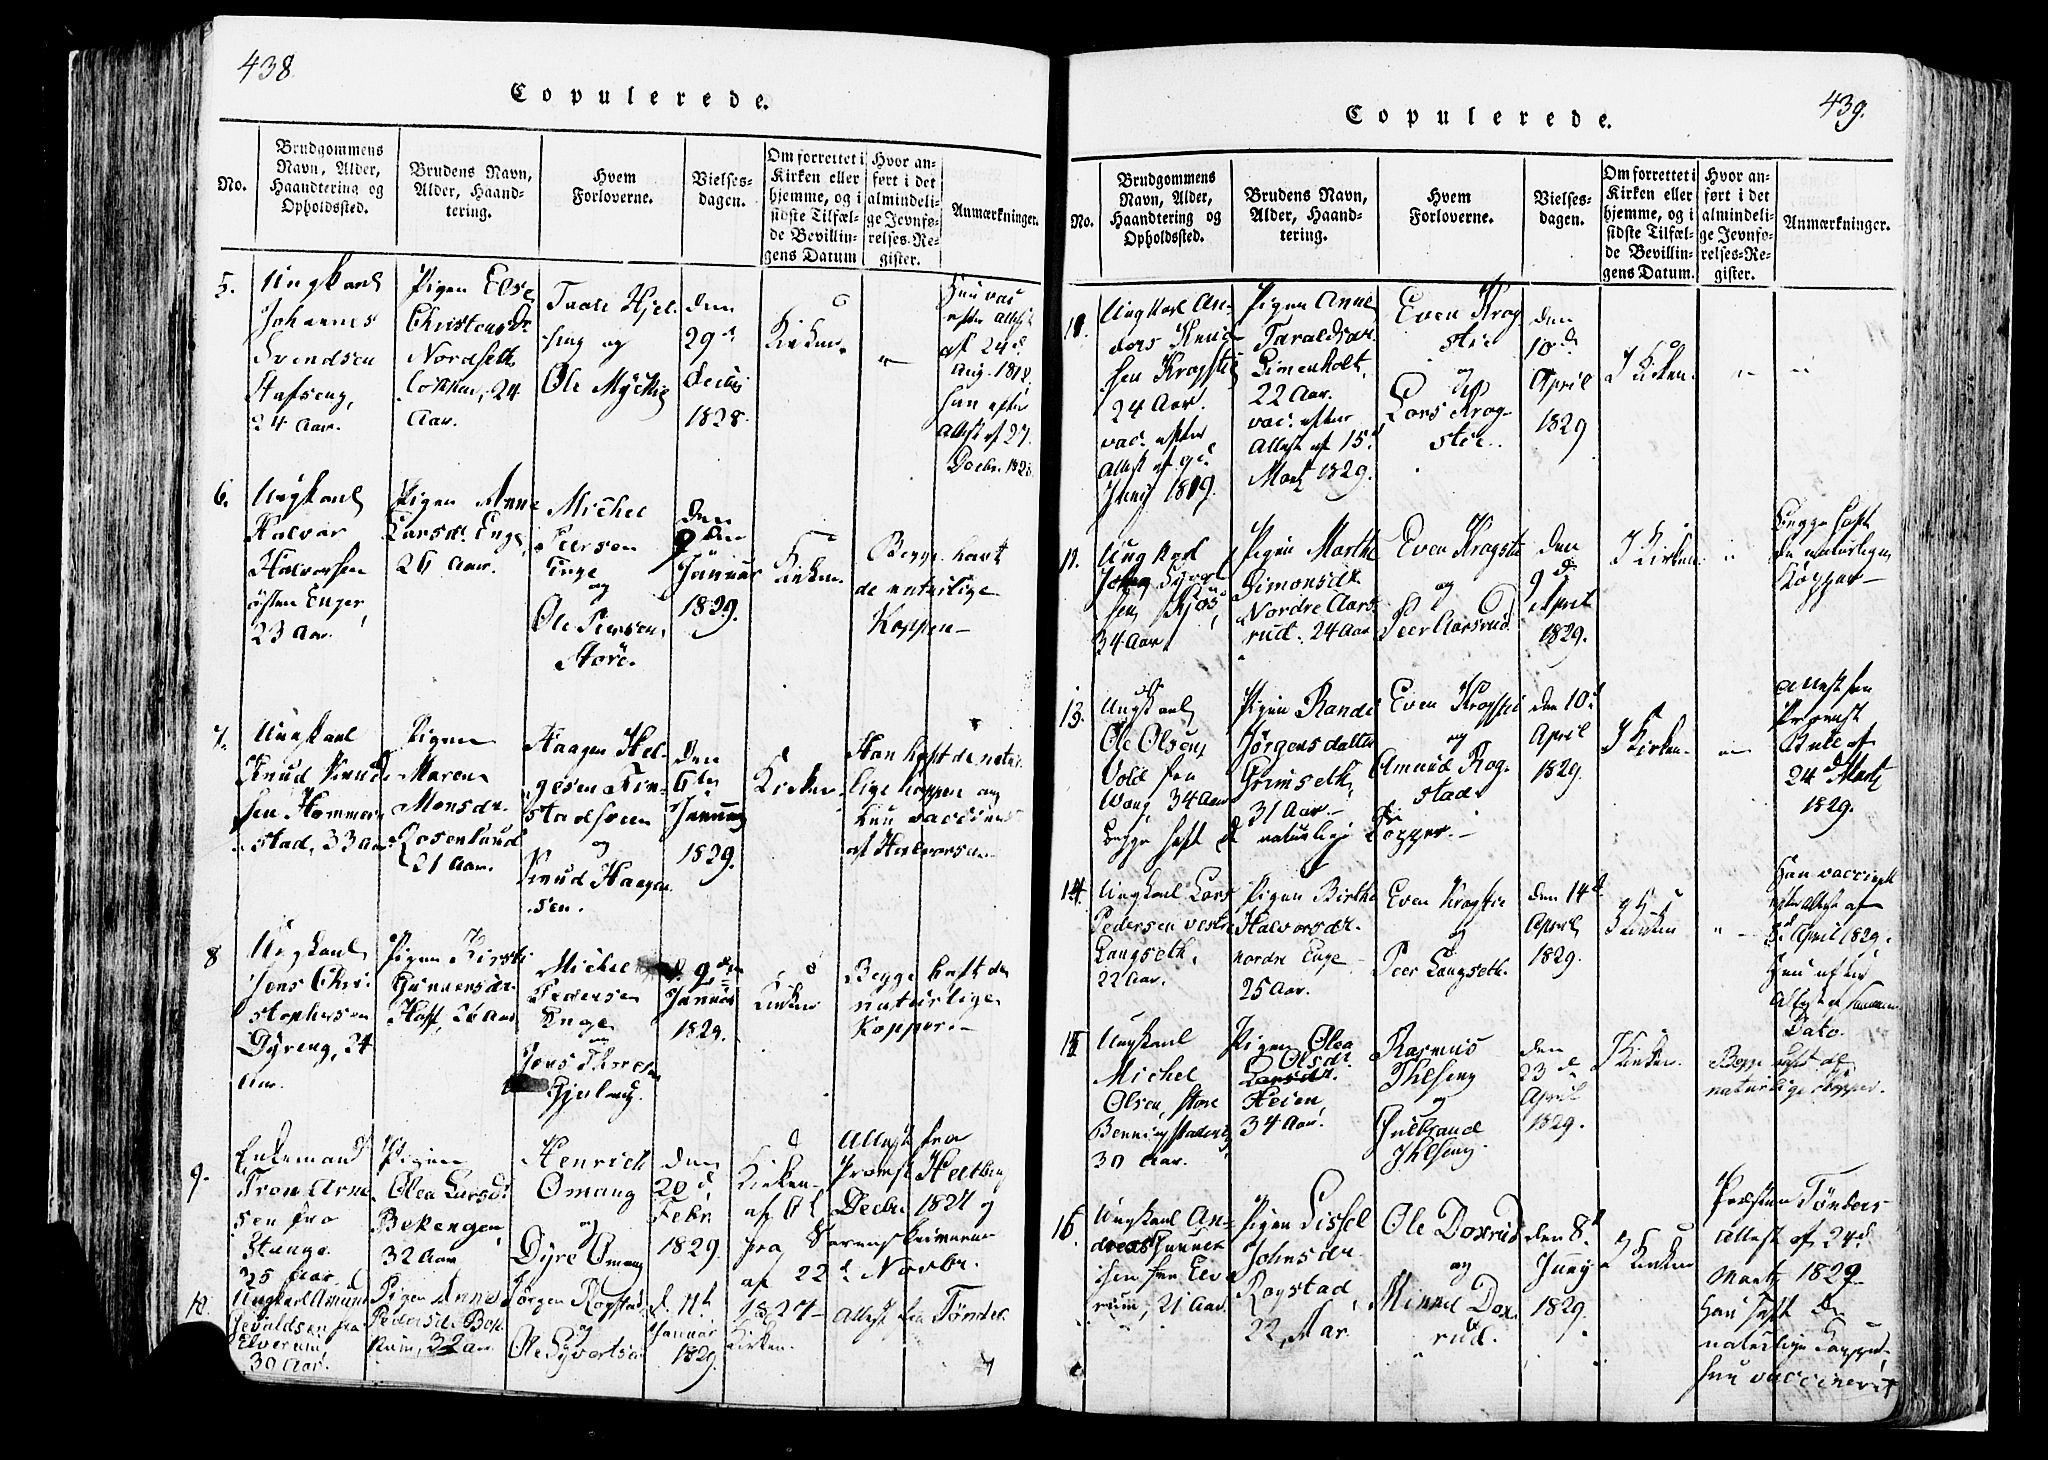 438
Copulerede.
No.
Brudgommens
Navn, Alder,
Haandtering og
Opholdssted.
Brudens Navn,
Alder, Haand-
tering.
Hvem
Forloverne.
Vielses-
dagen.
Om forrettet i
Kirken eller
hjemme, og i
sidste Tilfæl-
de Bevillin-
gens Datum
Hvor an-
ført i det
almindeli-
ge Jevnfø-
relses-Re-
gister.
Anmærkninger.
5.
Ungkarl
Johannes
Svendsen
24 Aar.
Pigen Else
Christensdr
Nordseth
24
Aar.
og
Ole
den
29d
1828.
Kirken.
Hun vac
efter Attest
af 24d
Aug. 1818,
han efter
Attest af 27.
Decbr. 1828
6.
Ungkarl
Halvor
Halvorsen
østen Enger,
23 Aar.
Pigen Anne
Larsdr. Enge,
26 Aar.
Michel
Peersen
Enge
og
Ole Peersen
den
Januar
1829.
Kirken
Begge havt
de naturlige
Kopper
7.
Ungkarl
Knud Knud
sen Hommer
stad, 33 Aar
Pigen
Maren
Monsdr.
Rosenlund
21 Aar.
Haagen Hel-
gesen Fin-
stadsveen
og
Knud Haagen
sen.
den
6te
Januar
1829.
Kirken
Han havt de natur
lige Kopper og
hun vaccineret
af Halvorsen
8
Ungkarl
Jens Chri
stophersen
Dyreng, 24
Aar.
Pigen Kirsti
Gunnersdr.
Hoff, 26 Aar
Michel
Pedersen
Enge
og
d. 9den
Januar
1829.
Kirken
Begge havt de
naturlige
Kopper.
9.
Enkemand
Tron Arne
sen fra
Stange
35 Aar.
Pigen
Olea Larsdr
Bekengen,
32 Aar
Henrich
Omang
og
Dyre Omang
den
20d
Febr
1829.
Kirken
Attest fra
Provst Heltberg
Decbr 1827 og
fra Sorenskriveren
af 22d Novbr.
1827
10.
Ungkarl Amund
Jevaldsen fra
Elverum
30 Aar.
Pigen Anne
Pedersdr Bek
32 Aar
Jørgen Rogstad
og
Ole Syvertsen
d. 11te
Januar
1829.
Kirken.
Attest fra Tønder
439.
Copulerede.
No.
Brudgommens
Navn, Alder,
Haandtering og
Opholdssted.
Brudens Navn,
Alder, Haand-
tering.
Hvem
Forloverne.
Vielses-
dagen.
Om forrettet i
Kirken eller
hjemme, og i
sidste Tilfæl-
de Bevillin-
gens Datum.
Hvor an-
ført i det
almindeli-
ge Jevnfø-
relses-Re-
gister.
Anmærkninger.
Ungkarl An-
ders Knud
sen Kragstie
24 Aar.
vac. efter
Attest af 9d
Juny 1819.
Pigen Anne
Taraldsdr.
Limenholt,
22 Aar.
vac. efter
Attest af 15d
Martz 1829.
Even Krog
stie
og
Lars Krog-
stie.
den
10d
April
1829
I Kirken.
Ungkarl
34 Aar
Pigen Marthe
Simonsdr
Nordre Aars-
rud. 24 Aar
Even Kragstie
og
Peer Aarsrud
den
9d
April
1829.
I Kirken
Begge havt
de naturlige
Kopper
13.
Ungkarl
Ole Olsen
Vold fra
Wang, 34 Aar
Pigen Randi
Jørgensdatter
Grimseth
31 Aar.
Even Kragstie
og
Amund Rog-
stad
den 10d
April
1829.
I Kirken.
Attest fra
Provst
Bule af
24d Martz
1829.
begge havt de naturlige Kopper.
14.
Ungkarl Lars
Pedersen vestre
Langseth,
22 Aar.
Pigen Birthe
Halvorsdr.
nordre Enge
25 Aar.
Even Kragstie
og
Peer Langseth.
den 14d
April
1829.
I Kirken
Han vaccineret
efter Attest af
5d April 1829,
Hun efter
Attest af samme
Dato.
15
Ungkarl
Michel
Olsen, store
Benningstadeng
30 Aar.
Pigen Olea
Olsdr
Larsdr.
Heien,
34 Aar.
Rasmus
Ihlseng
og
Gulbrand
Ihlseng.
den
23d
April
1829.
I Kirken.
Begge havt de
naturlige Kopper.
16.
Ungkarl An-
dreas Gunner
sen fra Elve
rum, 21 Aar.
Pigen Sissel
Johnsdr.
Rogstad
22 Aar.
Ole Doxrud
og
Dox
rud.
den 8d
Juny
1829.
I Kirken
Præsten Tønders
Attest af 24d
Martz 1829
Han havt de
naturlige Kopper,
hun vaccineret